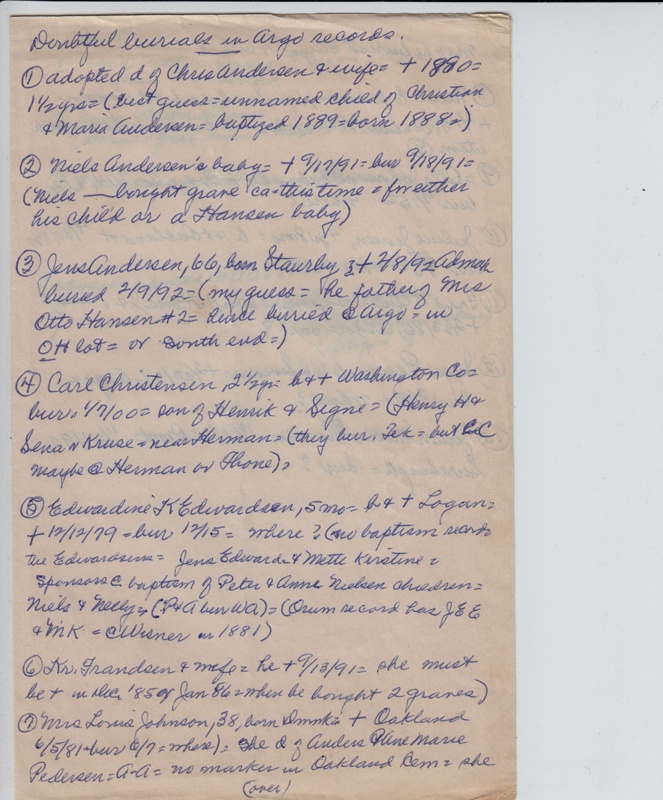 Doubtful burials in Argo records.
① adopted d of Chris Andersen & wife = + 1880 =
1½ yrs = (best guess = unnamed child of Christian
& Maria Andersen = baptized 1889 = born 1888 =)
② Niels Andersen's baby = + 9/17/91 = bur 9/18/91 =
(Niels — bought grave ca = this time = for either
his child or a Hansen baby)
③ Jens Andersen, 66, born Staurby, + 2/8/92 Admah
buried 2/9/92 = (my guess = he father of Mrs
Otto Hansen #2 = hence buried @ Argo = in
OH lot = or south end =)
④ Carl Christensen, 2½ yr = b & + Washington Co =
bur. 1/7/00 = son of Henrik & Segne = (Henry H &
Sena n Kruse = near Herman = (they bur. Tek = but CC
maybe @ Herman or Thone) =
⑤ Edwardine K Edwardsen, 5 mo = b & + Logan =
+ 12/12/79 = bur 12/15 = where? (no baptism record =
the Edwardsens = Jens Edward & Mette Kirstine =
sponsors @ baptism of Peter & Anne Nielsen children =
Niels & Nelly = (P & A bur WA) = (Orum record has JEE
& MK = C Wisner in 1881)
⑥ Kr. Frandsen & wife = he + 9/13/91 = she must
be + in Dec '85 or Jan 86 = when he bought 2 graves)
⑦ Mrs Louis Johnson, 38, born Dnmk = + Oakland
6/5/81 = bur 6/7 = where) = she d of Anders & Ane Marie
Pedersen = A-A = no marker in Oakland Cem = she
(over)